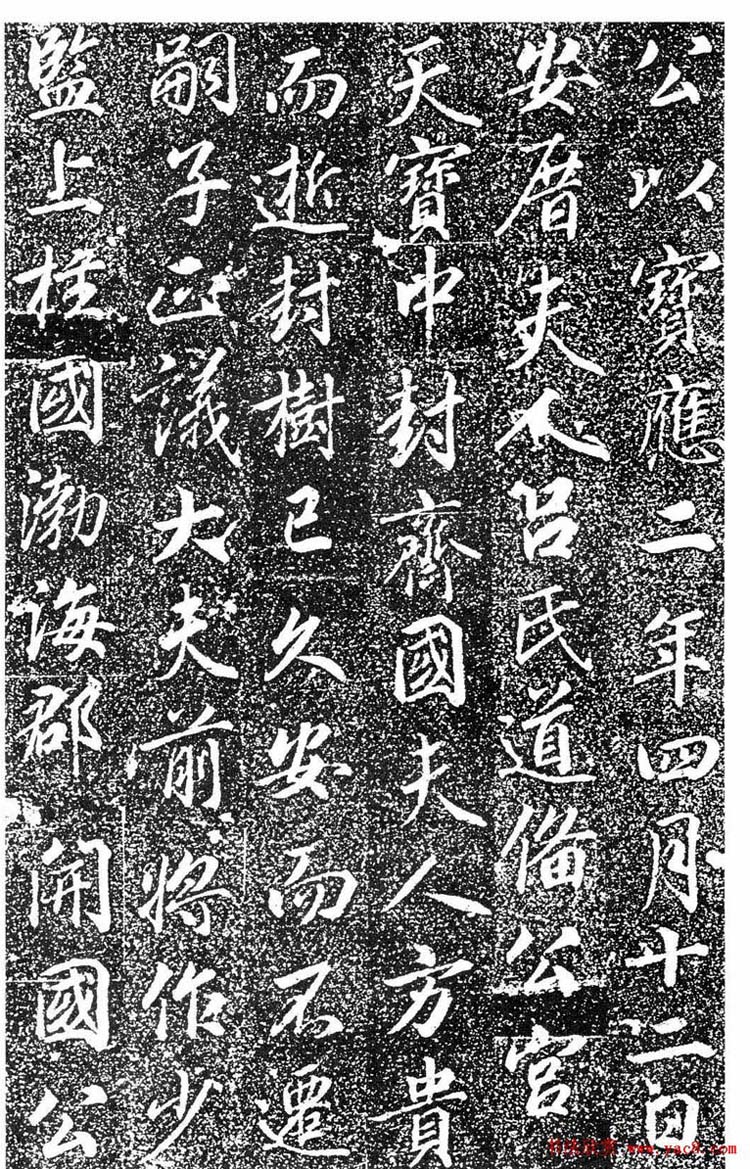 公以寶應二年四月十二日
安厝夫人呂氏道備公宮
天寶中封齊國夫人方貴
而逝封樹已久安而不遷
嗣子正議大夫前將作少
監上柱國渤海郡開國公
书法欣赏 www.yac8.com